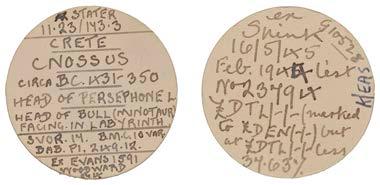 AR STATER
11.23/143.3
CRETE
CNOSSUS
CIRCA B.C. 431-350
HEAD OF PERSEPHONE L
HEAD OF BULL (MINOTAUR)
FACING IN LABYRINTH
SVOR. 14. B.M.G 10 VAR.
BAB. Pl. 249.12.
EX EVANS 1591
WOODWARD
ex
Shink
16/5/45
Feb. 194 List
No 23794
£DTL/-/-(marked
G £DEN/-/-) but
at £DTL/-/- less
34.63%
G10528
KEAS